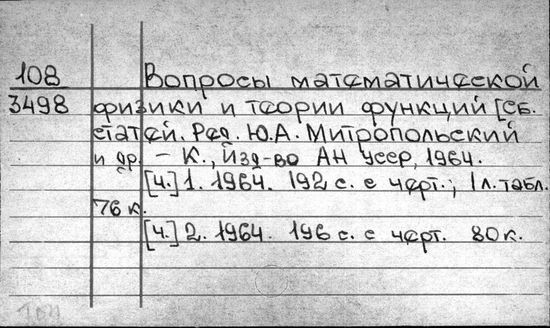 108 Вопросы математической
3498 физики и теории функций [Сб.
статей. Ред. Ю.А. Митропольский
и др. – К., Изд-во АН УССР, 1964.
[Ч.] 1. 1964. 192 с. с черт.; 1 л. табл.
76 к.
[Ч.] 2. 1964. 196 с. с черт. 80 к.